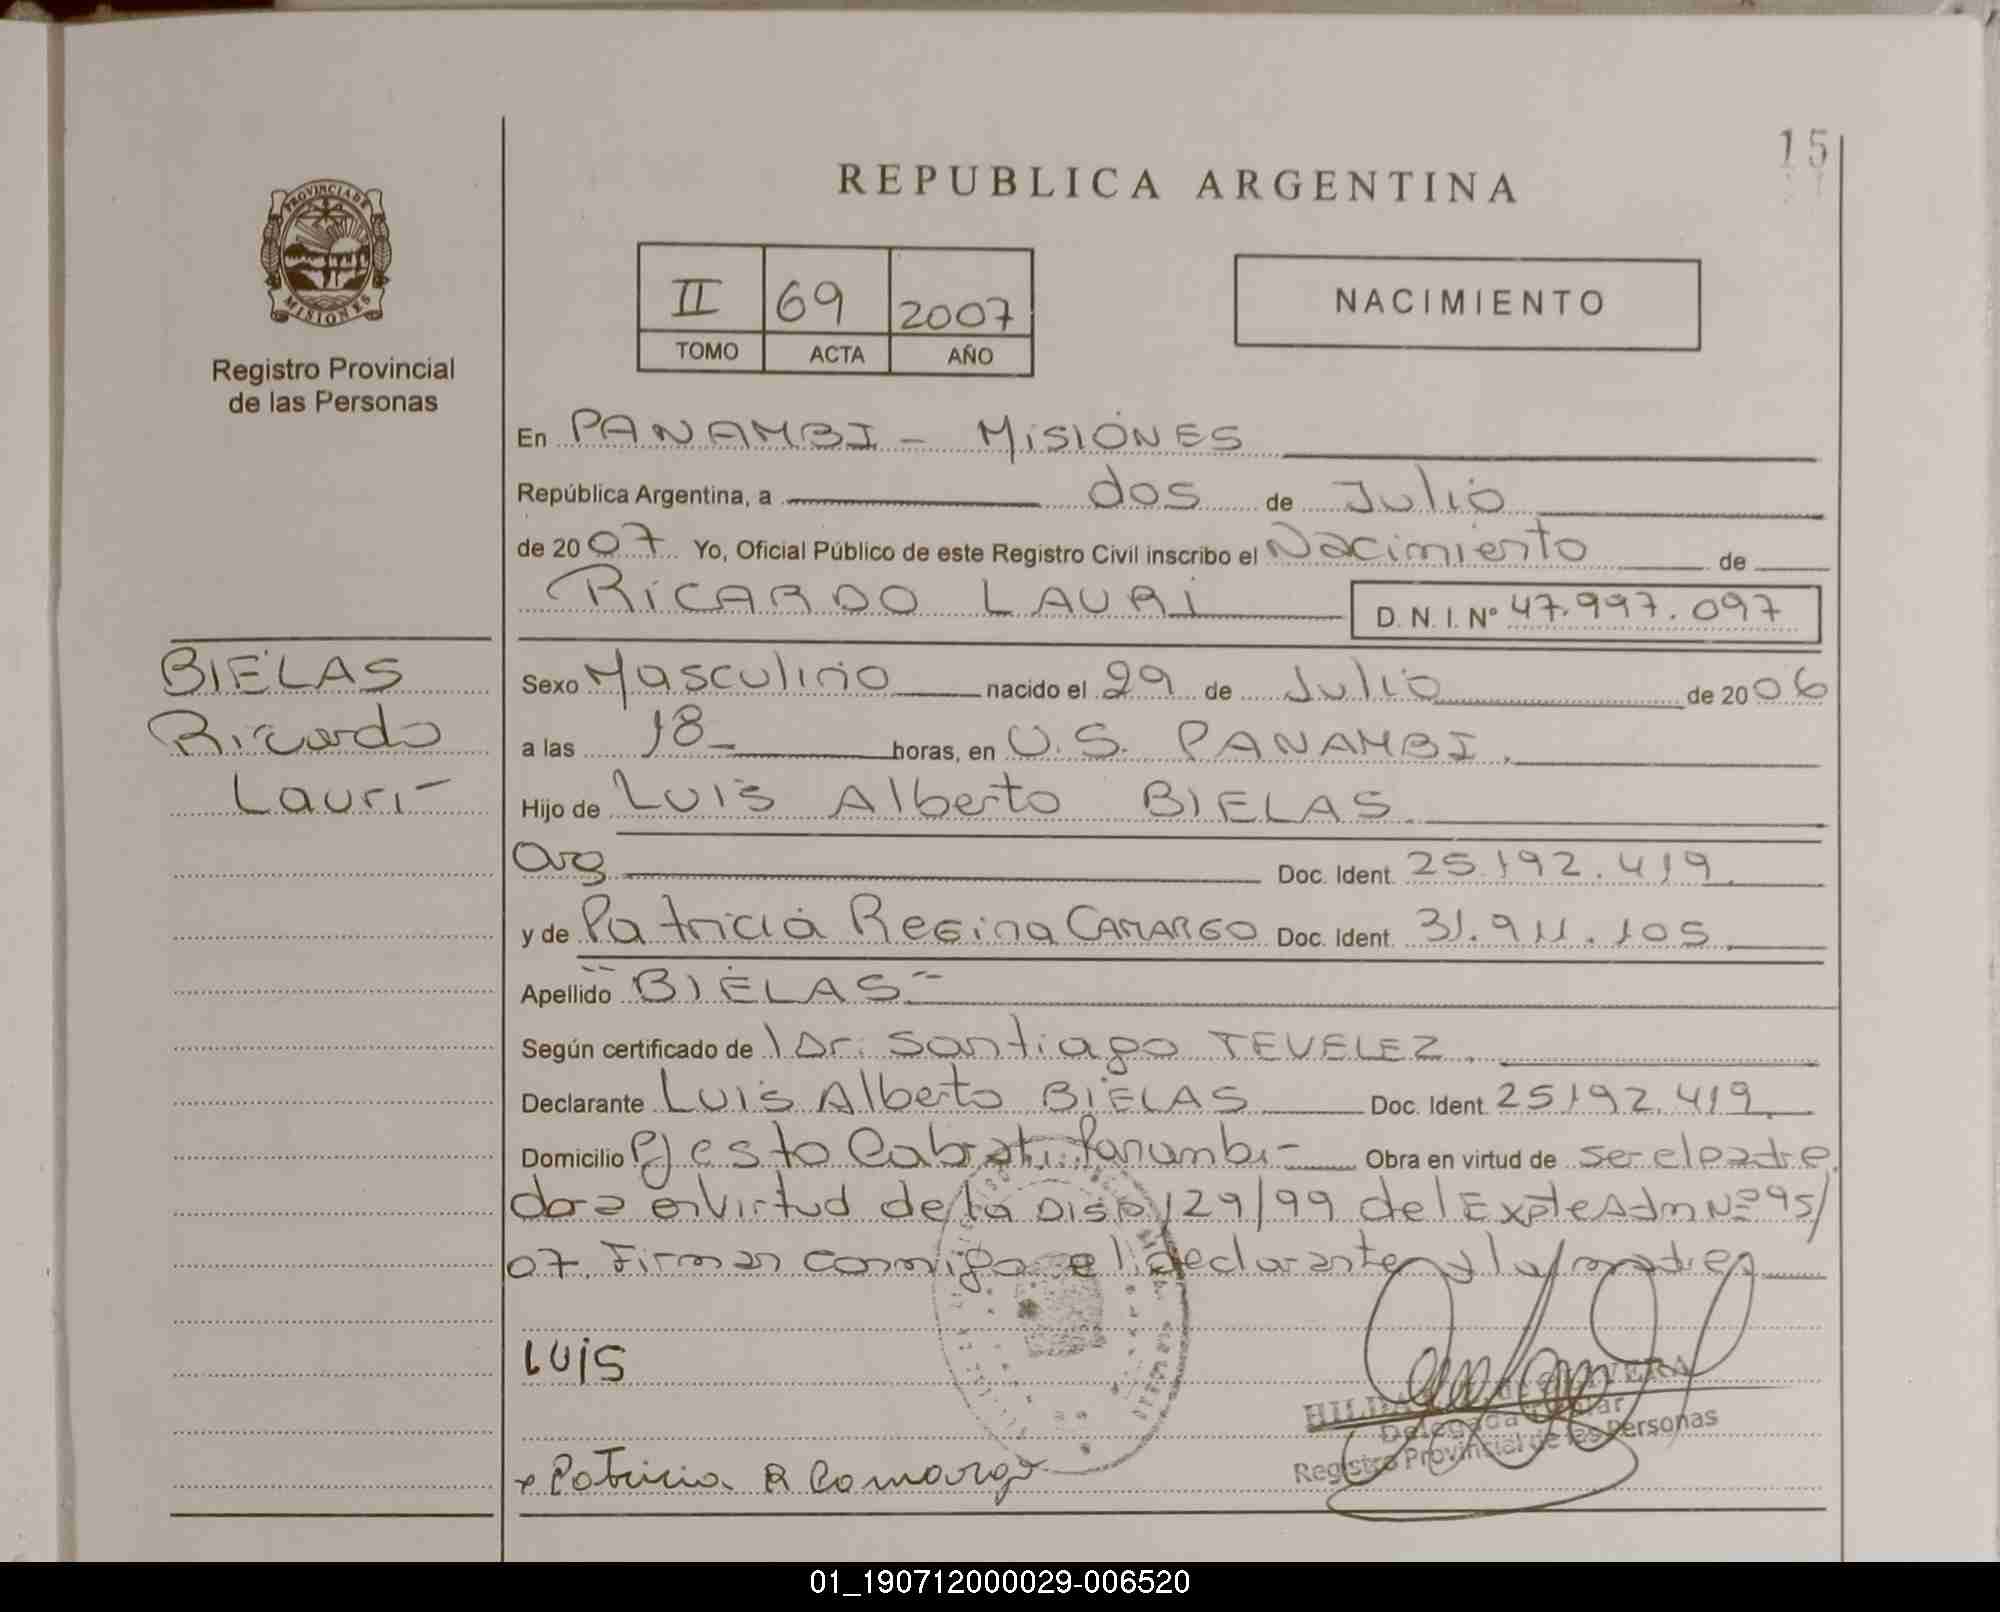 15
REPUBLICA ARGENTINA
PROVINCIA DE
MISIONES
Registro Provincial
de las Personas
II 69 2007
TOMO ACTA AÑO
NACIMIENTO
En PANAMBI - MISIONES
República Argentina, a dos de Julio
de 2007 Yo, Oficial Público de este Registro Civil inscribo el Nacimiento de
RICARDO LAURI D. N. I. Nº 47.997.097
BIELAS
Ricardo
Lauri
Sexo Masculino nacido el 29 de Julio de 2006
a las 18 horas, en U.S. PANAMBI.
Hijo de Luis Alberto BIELAS
Arg Doc. Ident. 25.192.419
y de Patricia Regina CAMARGO Doc. Ident. 31.911.105
Apellido "BIELAS"
Según certificado de Dr. Santiago TEVELEZ.
Declarante Luis Alberto BIELAS Doc. Ident. 25.192.419
Domicilio Panambi Obra en virtud de ser el padre
en virtud de la Disp 129/99 del Expte Adm Nº 95/
07. Firman conmigo el declarante y la madre
LUIS
Patricia R Camargo
HILDA de OLIVERA
Delegada Titular
Registro Provincial de las Personas
01_190712000029-006520